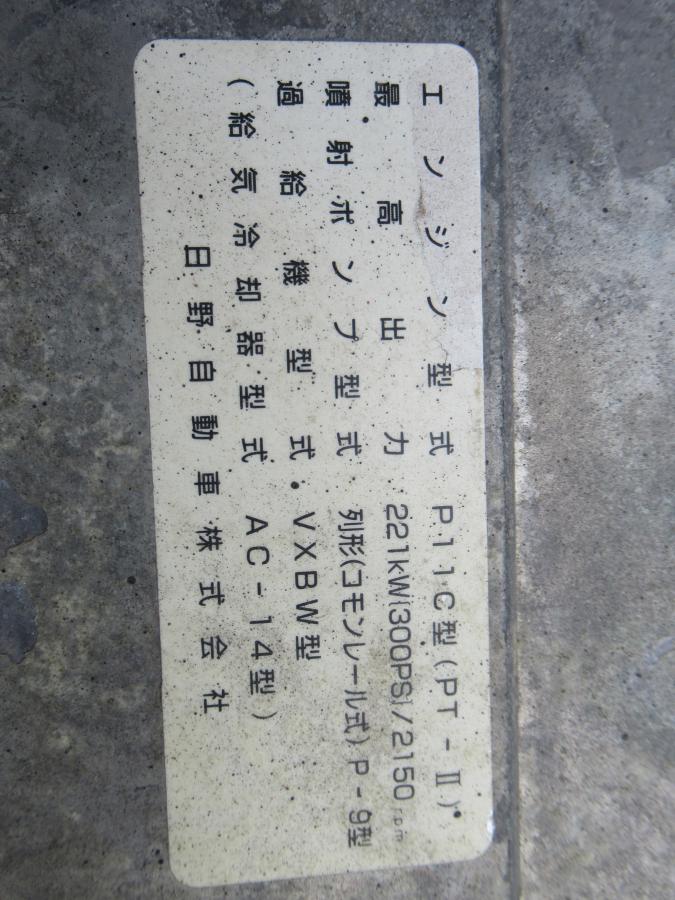 エンジン型式 P11C型(PT-Ⅱ)
最高出力 221kW{300PS}/2150rpm
噴射ポンプ型式 列形(コモンレール式)P-9型
過給機型式 VXBW型
(給気冷却器型式 AC-14型)
日野自動車株式会社